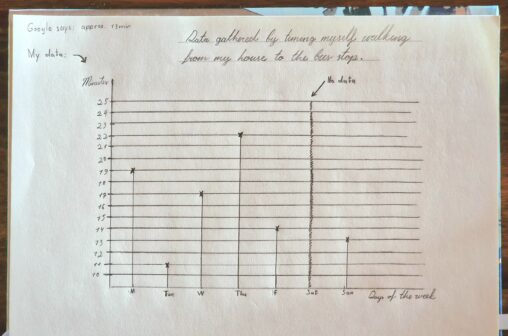 Google says: approx. 13min
My data:
Data gathered by timing myself walking
from my house to the bus stop.
No data
Minutes
25
24
23
22
21
20
19
18
17
16
15
14
13
12
11
10
M
Tue
W
Thu
F
Sat
Sun
Days of the week